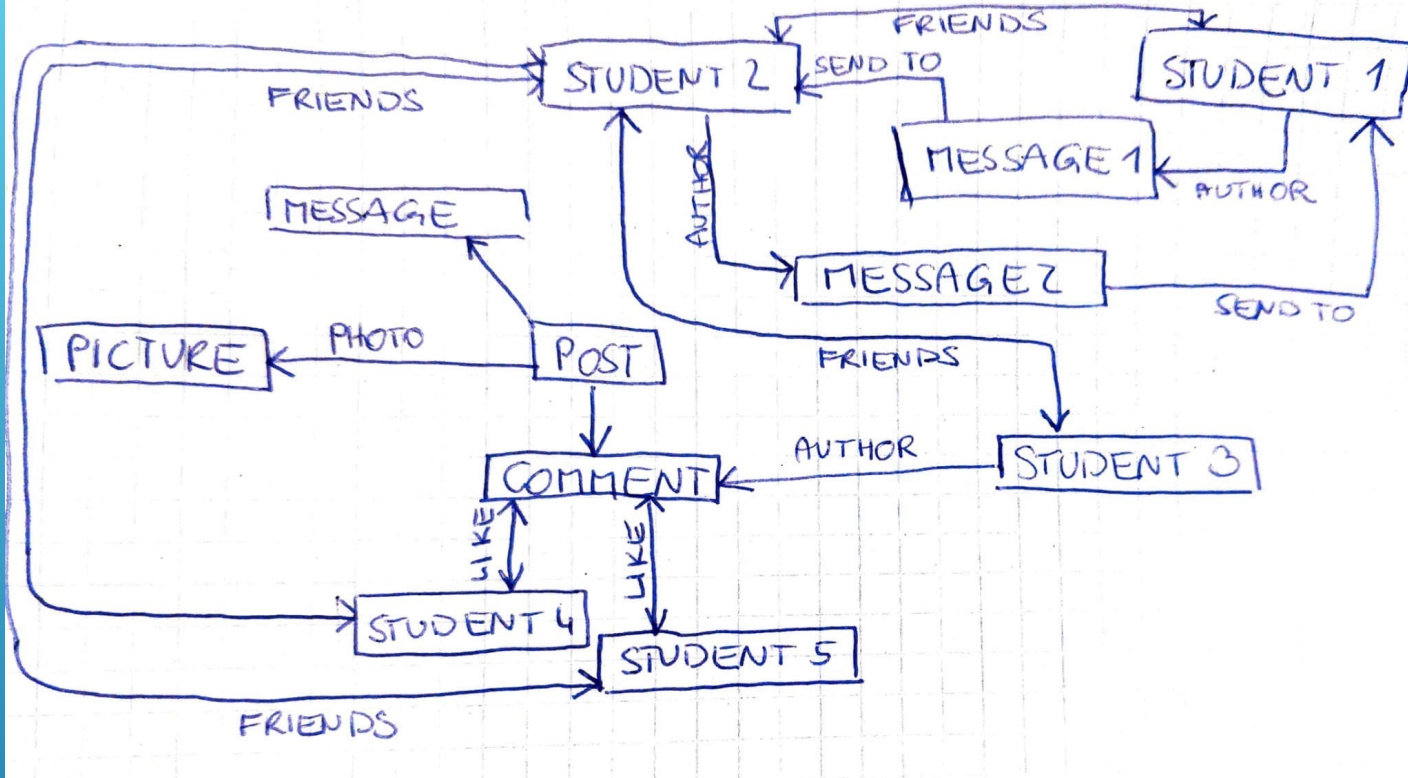 FRIENDS
STUDENT 2
SEND TO
STUDENT 1
FRIENDS
MESSAGE 1
AUTHOR
MESSAGE
AUTHOR
MESSAGE 2
SEND TO
PICTURE
PHOTO
POST
FRIENDS
COMMENT
AUTHOR
STUDENT 3
LIKE
LIKE
STUDENT 4
STUDENT 5
FRIENDS